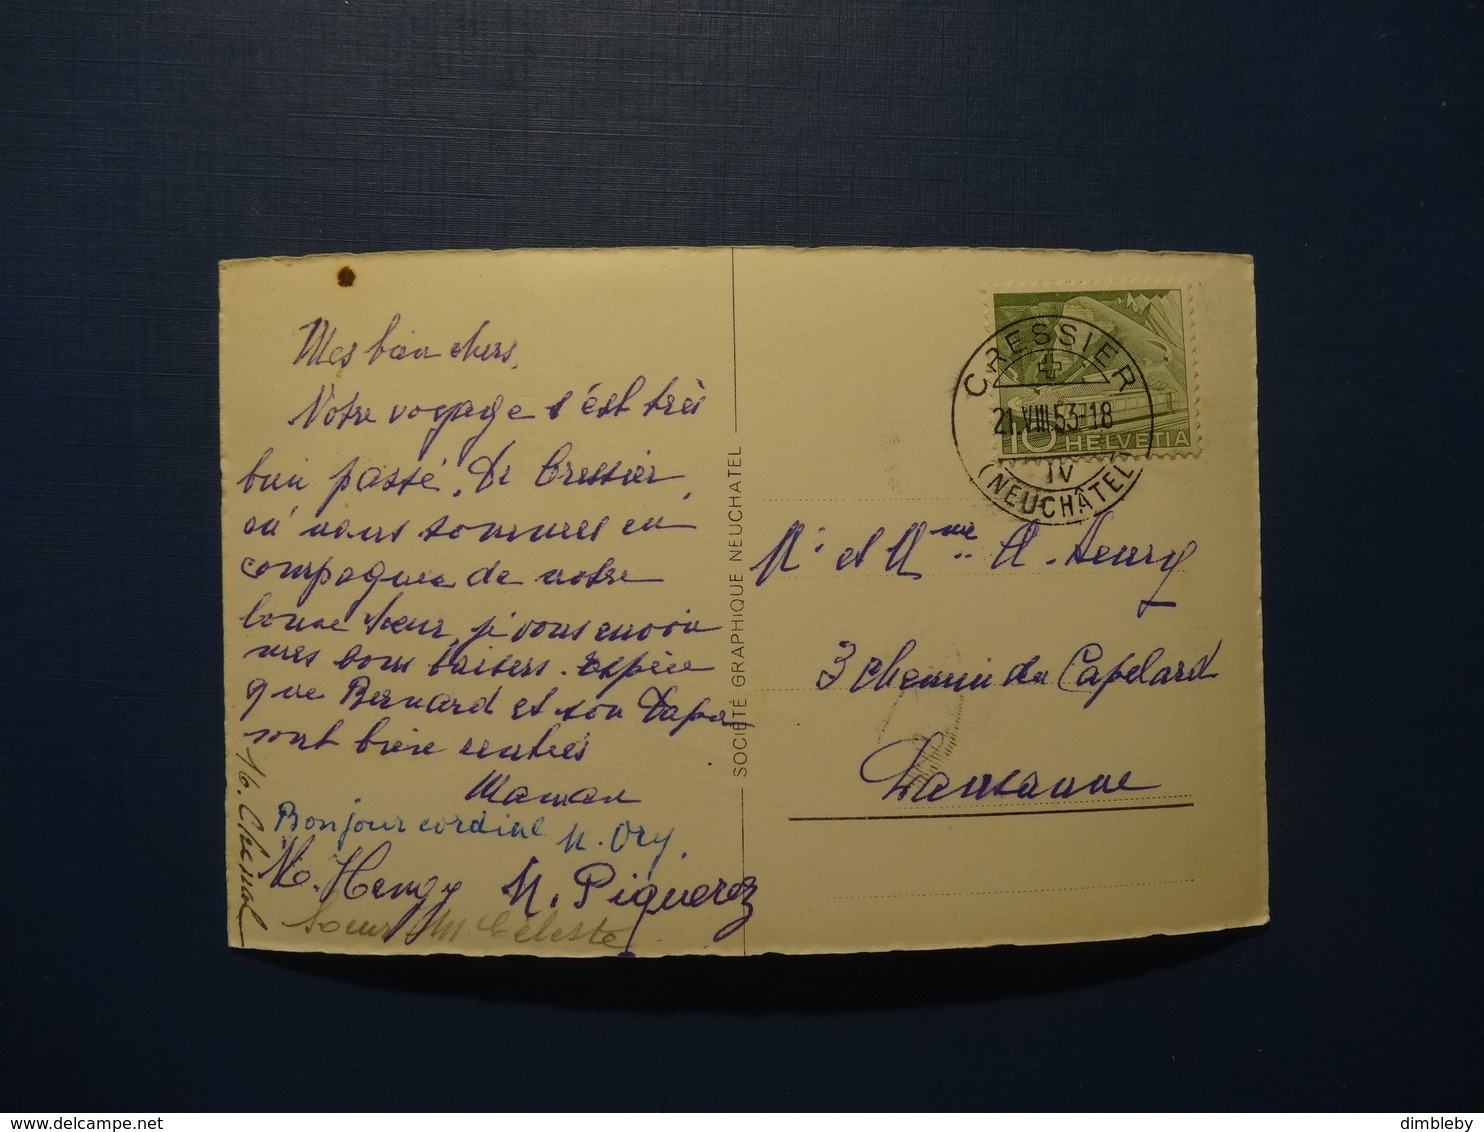 Mes bien chers,
Notre voyage s'est très
bien passé. De Cressier,
où nous sommes en
compagnie de notre
bonne Sœur, je vous envoie
mes bons baisers. Espère
que Bernard et son Papa
sont bien rentrés
Maman
Bonjour cordial M. Ory.
M. Henry M. Piquerez
Sœur M. Céleste
SOCIÉTÉ GRAPHIQUE NEUCHATEL
CRESSIER
21.VIII.53-18
IV
(NEUCHÂTEL)
10 HELVETIA
Mr et Mme A. Henry
3 Chemin du Capelard
Lausanne
delcampe.net
dimbleby